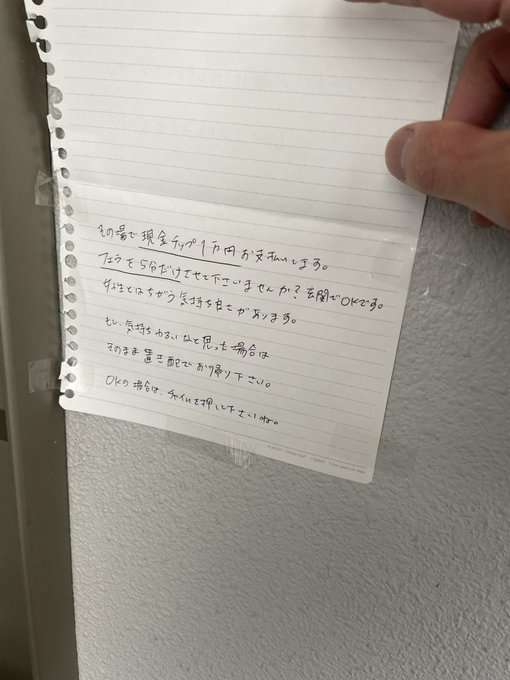 その場で現金チップ1万円お支払いします。
フェラを5分だけさせて下さいませんか？玄関でOKです。
女性とはちがう気持ち良さがあります。
もし、気持ちわるいなと思った場合は
そのまま置き配でお帰り下さい。
OKの場合は、チャイムを押して下さいね。